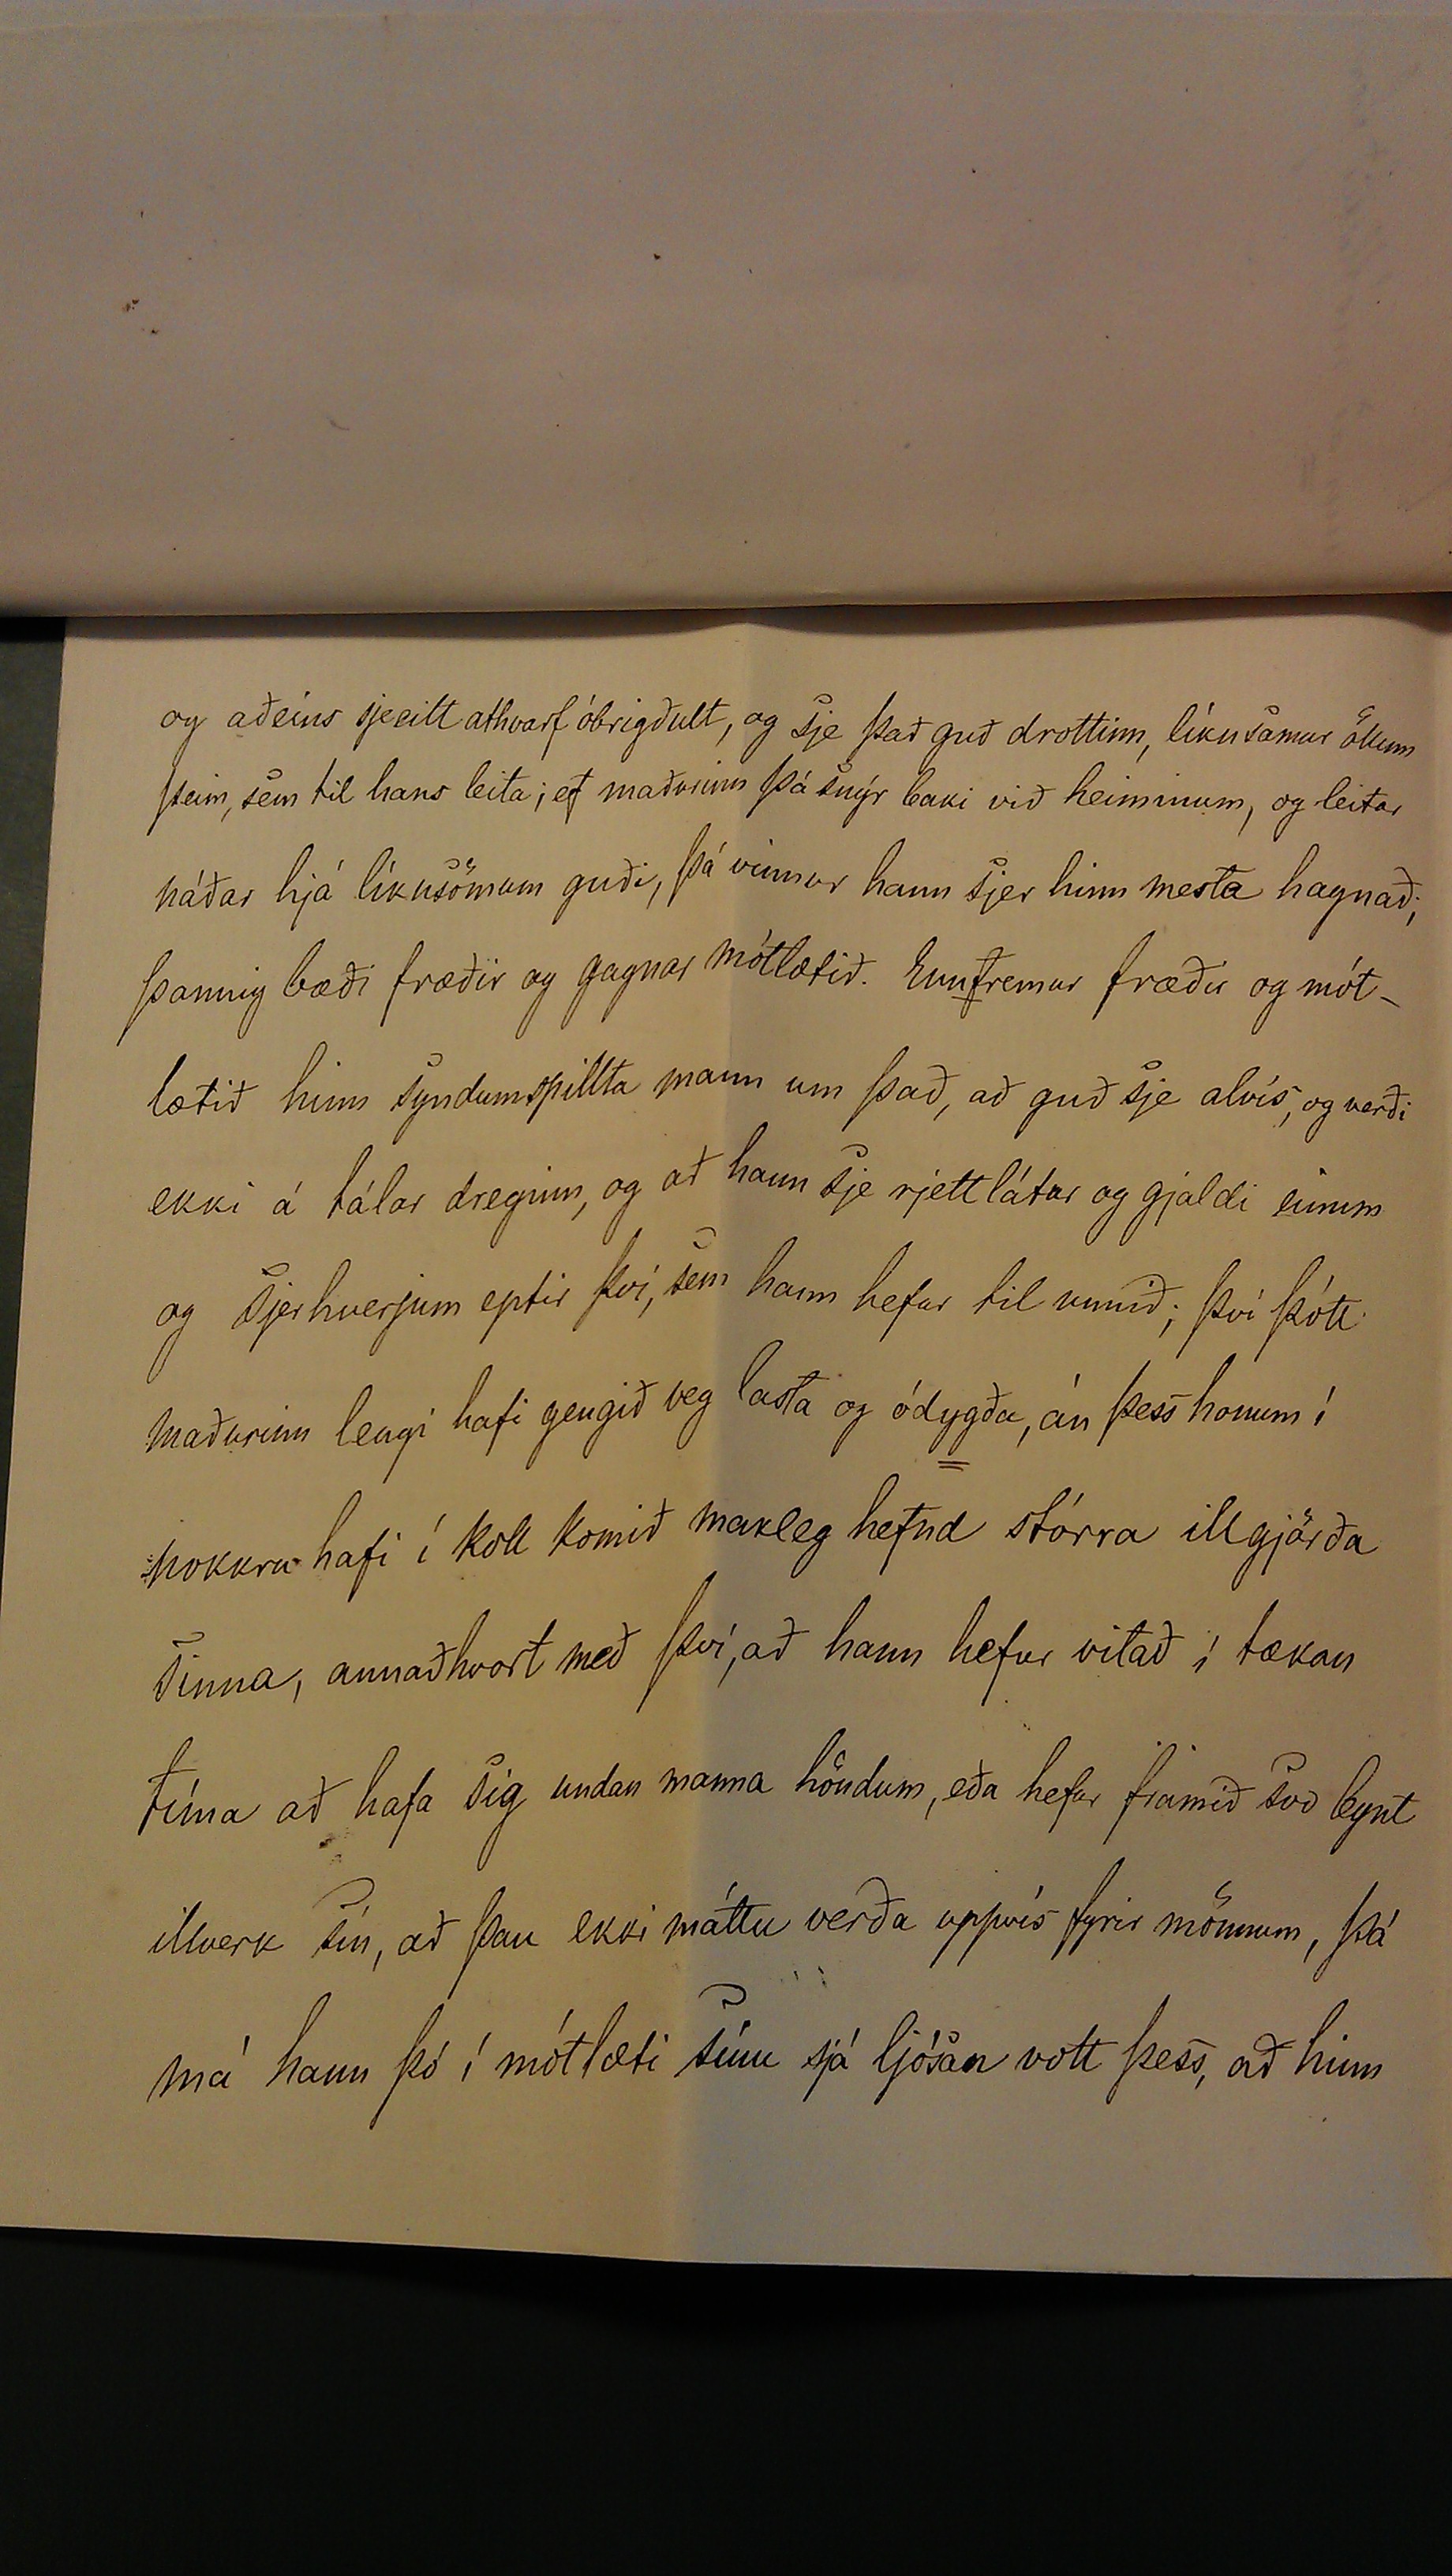 og aðeins sje eitt athvarf óbrigðult, og sje það guð drottinn, líknsamur öllum
þeim, sem til hans leita; ef maðurinn þá snýr baki við heiminum, og leitar
náðar hjá líknsömum guði, þá vinnur hann sjer hinn mesta hagnað;
þannig bæði fræðir og gagnar mótlætið. Ennfremur fræðir og mót-
lætið hinn syndumspillta mann um það, að guð sje alvís, og verði
ekki á tálar dreginn, og að hann sje rjettlátur og gjaldi einum
og sjerhverjum eptir því, sem hann hefur til unnið; því þótt
maðurinn lengi hafi gengið veg lasta og ódygða, án þess honum í
nokkru hafi í koll komið makleg hefnd stórra illgjörða
sinna, annaðhvort með því, að hann hefur vitað í tækan
tíma að hafa sig undan manna höndum, eða hefur framið svo leynt
illverk sín, að þau ekki máttu verða uppvís fyrir mönnum, þá
má hann þó í mótlæti sínu sjá ljósan vott þess, að hinn